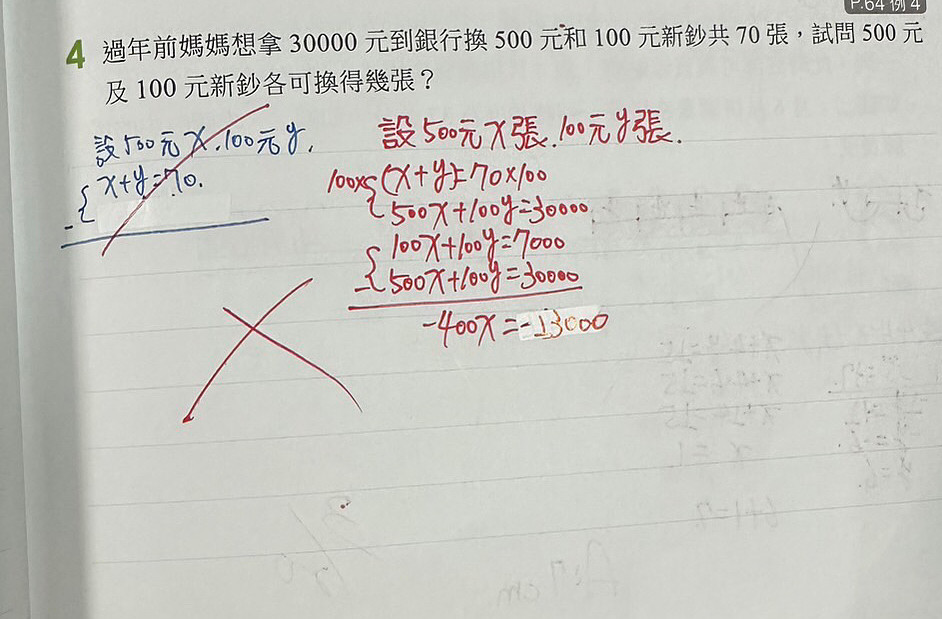 P.64 例 4
4 過年前媽媽想拿 30000 元到銀行換 500 元和 100 元新鈔共 70 張，試問 500 元
及 100 元新鈔各可換得幾張？
設500元x.100元y.
x+y=70.
設500元x張.100元y張.
100x{(x+y)=70x100
500x+100y=30000
100x+100y=7000
500x+100y=30000
-400x=-13000